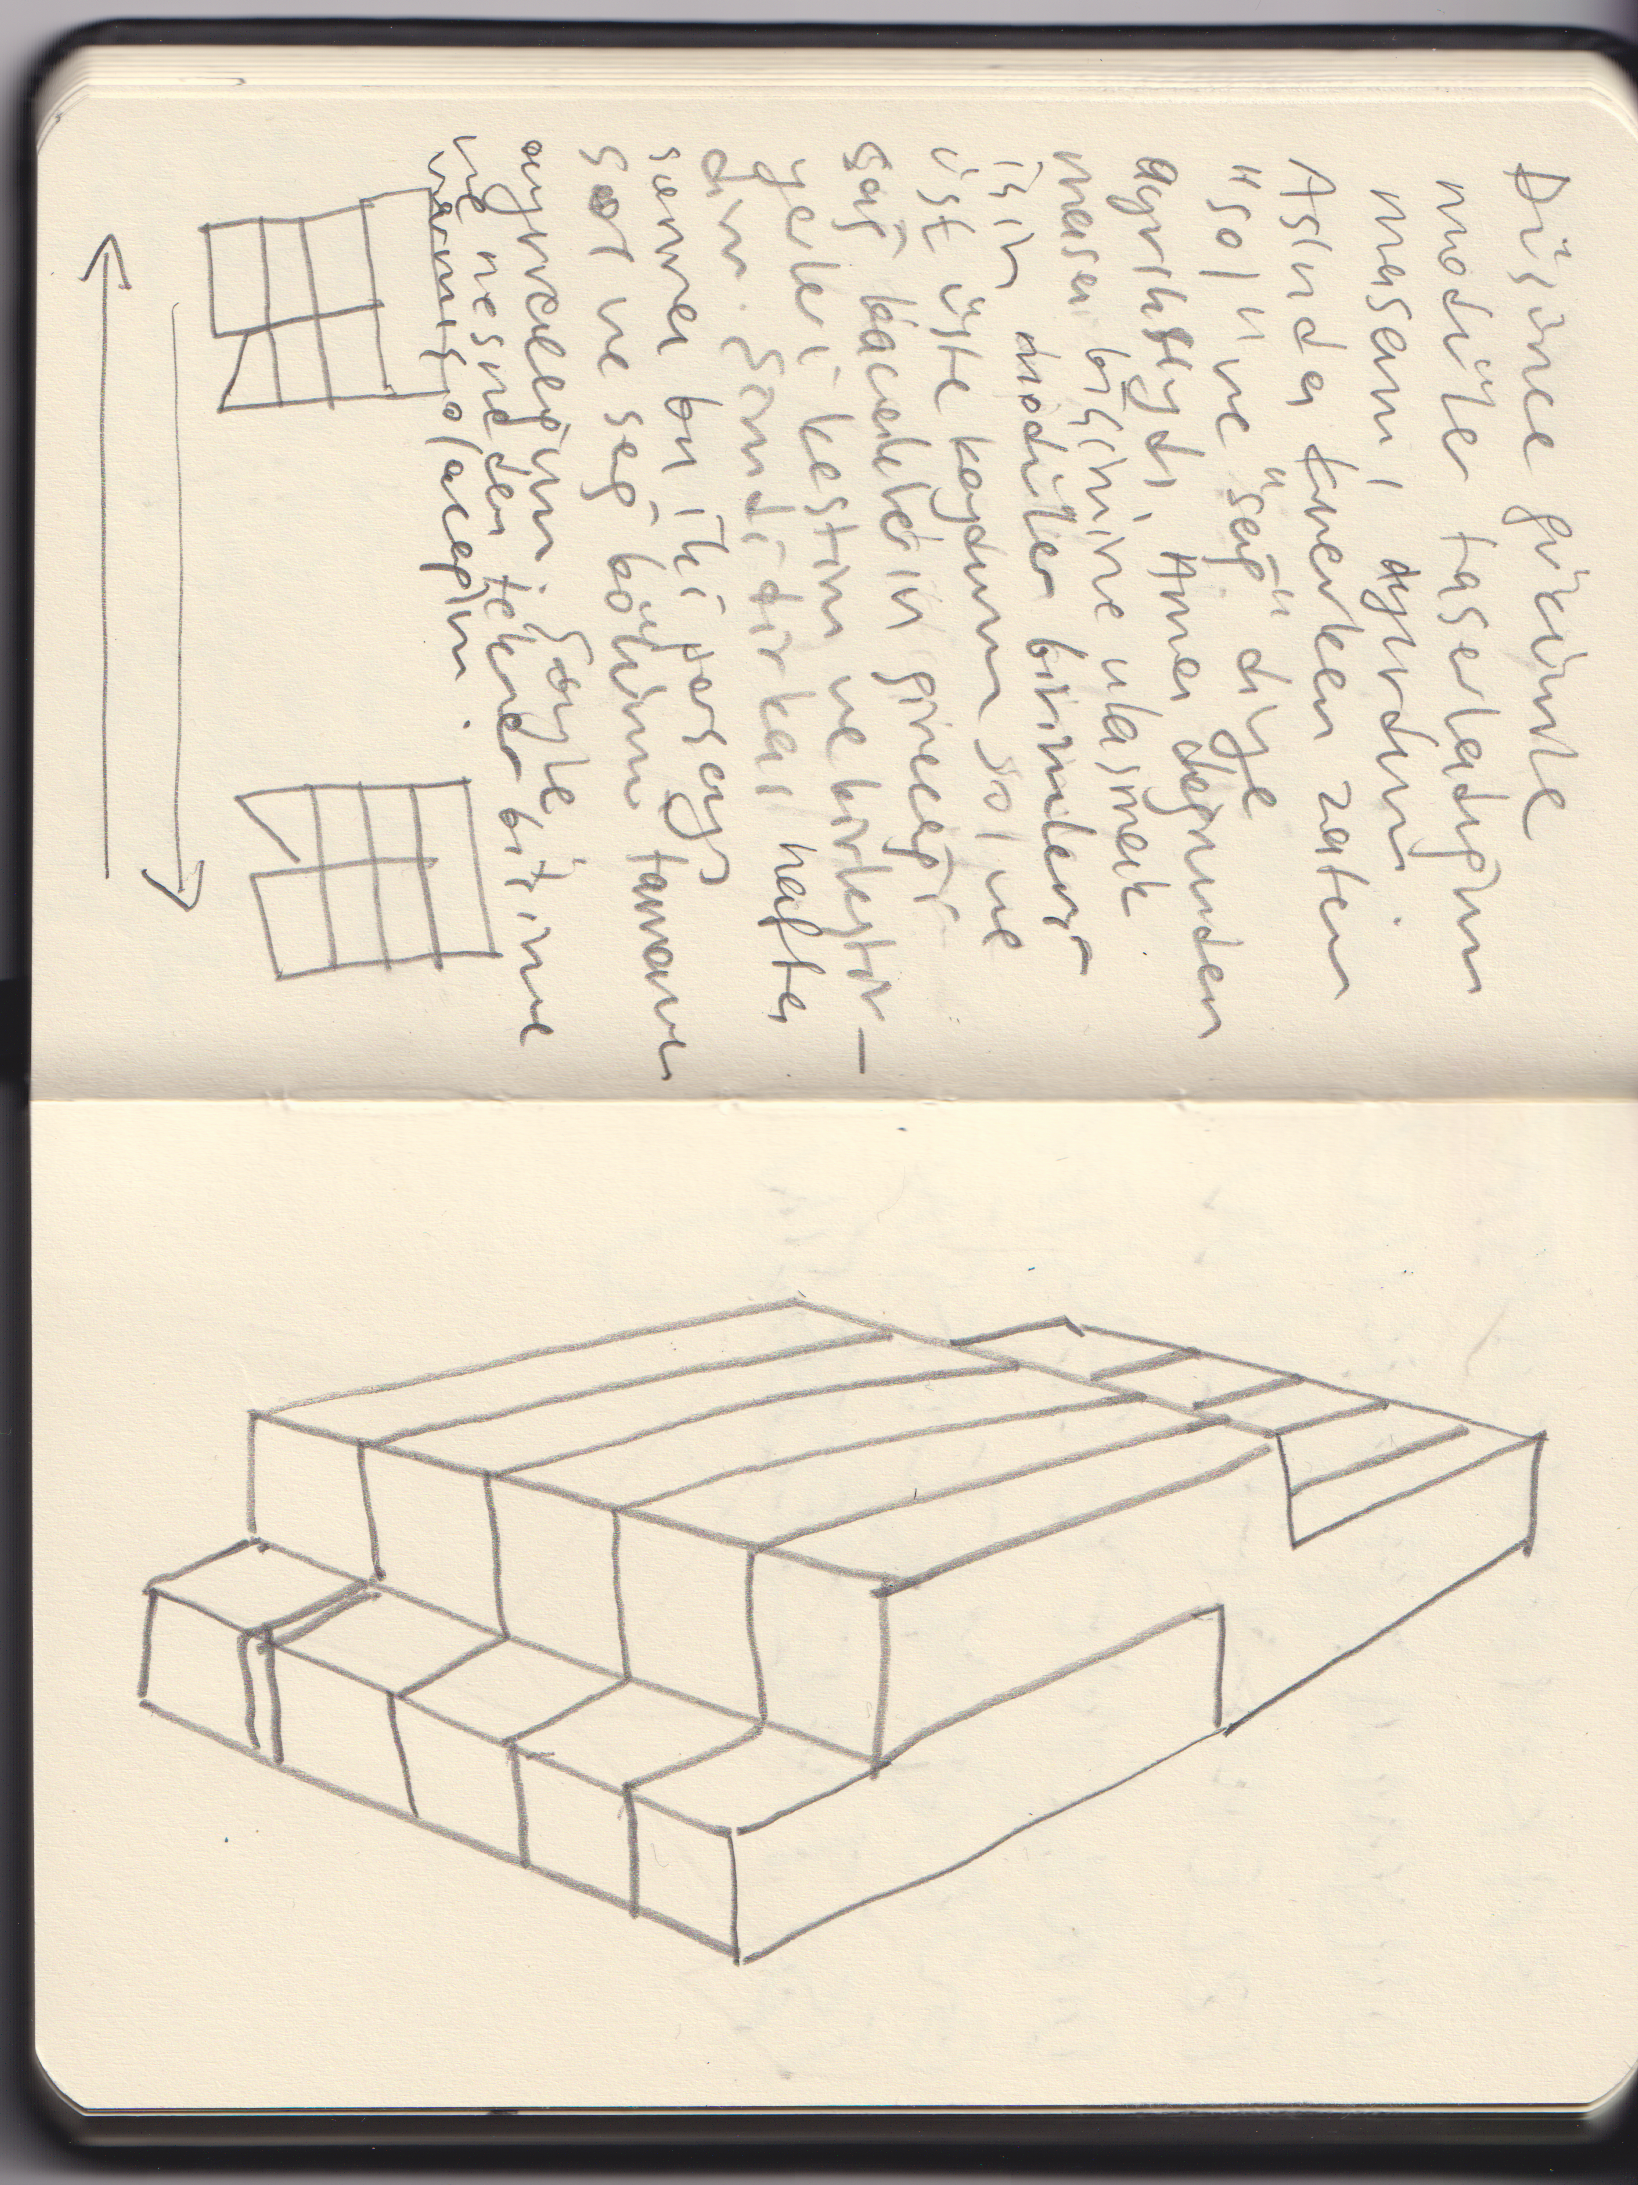 Düşünce gücümle
modüler tasarladığım
masamı, ayırdım.
Aslında kurarken zaten
"sol" ve "sağ" diye
ayrıktıydı. Ama dağınıdan
masa biçimine ulaşmak
için modüler birimleri
üst üste koydum sol ve
sağ bacakların gireceği
yerleri kestim ve birleştir-
dim. Şimdi birkaç hafta
sonra bu iki parçayı
sol ve sağ bölümü tamamen
ayıracağım. Böylece
ve nesneden tekrar bitime
varmış olacağım.